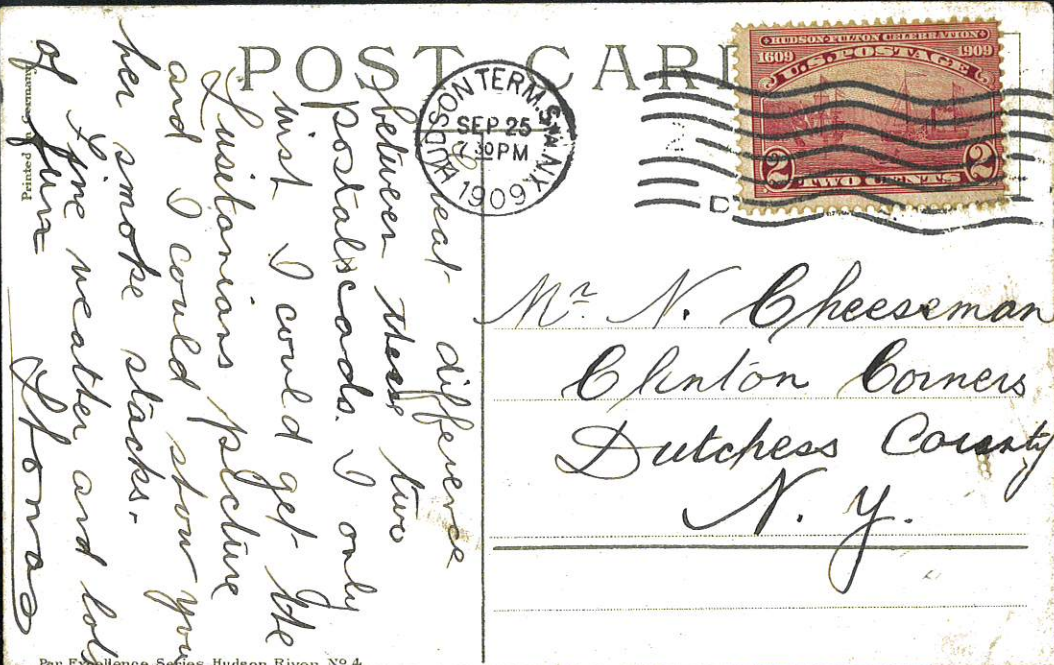 POST CARD
HUDSON TERM. STA. N.Y.
SEP 25
7 30 PM
1909
HUDSON-FULTON CELEBRATION
1609 1909
U.S. POSTAGE
2 TWO CENTS 2
D
Printed in Germany
Great difference
between these two
postals cards. I only
wish I could get the
Lusitanians picture
and I could show you
her smoke stacks.
Fine weather and lots
of fun
Thomas
Mr. N. Cheeseman
Clinton Corners
Dutchess County
N. Y.
Par Excellence Series Hudson River No 4